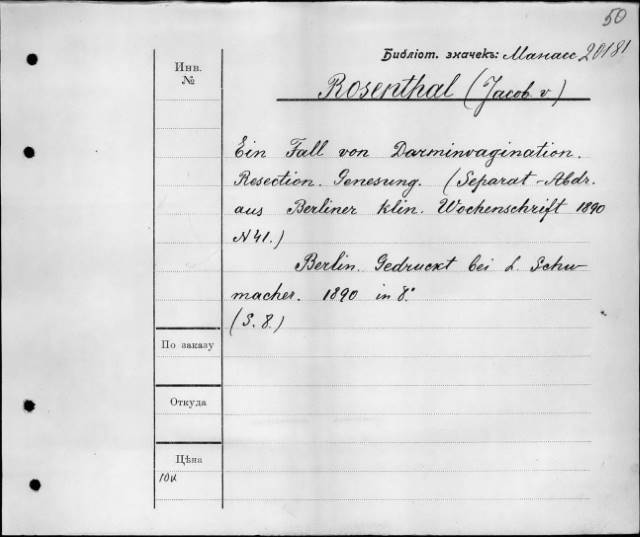 50
Библіот. значекъ: Манасс 20181
Инв.
№
Rosenthal (Jacob v)
Ein Fall von Darminvagination.
Resection. Genesung. (Separat-Abdr.
aus Berliner klin. Wochenschrift 1890
N 41.)
Berlin. Gedruckt bei L. Schu-
macher. 1890 in 8°
(S. 8.)
По заказу
Откуда
Цѣна
10к